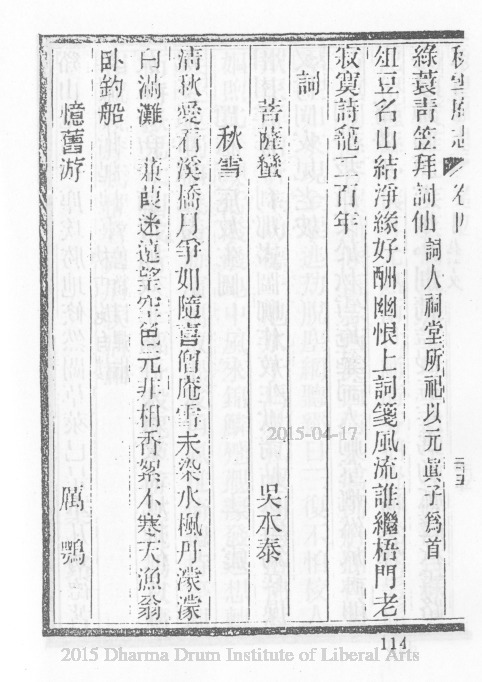 秋雪庵志 卷四
綠蓑青笠拜詞仙 詞人祠堂所祀以元眞子爲首
俎豆名山結淨緣好酬幽恨上詞箋風流誰繼梧門老
寂寞詩龕二百年
詞
菩薩蠻 吳本泰
秋雪
淸秋愛看溪橋月爭如隨喜僧庵雪未染水楓丹濛濛
白滿灘 蒹葭迷遠望空色元非相香絮不寒天漁翁
臥釣船
憶舊游 厲鶚
2015-04-17
114
2015 Dharma Drum Institute of Liberal Arts